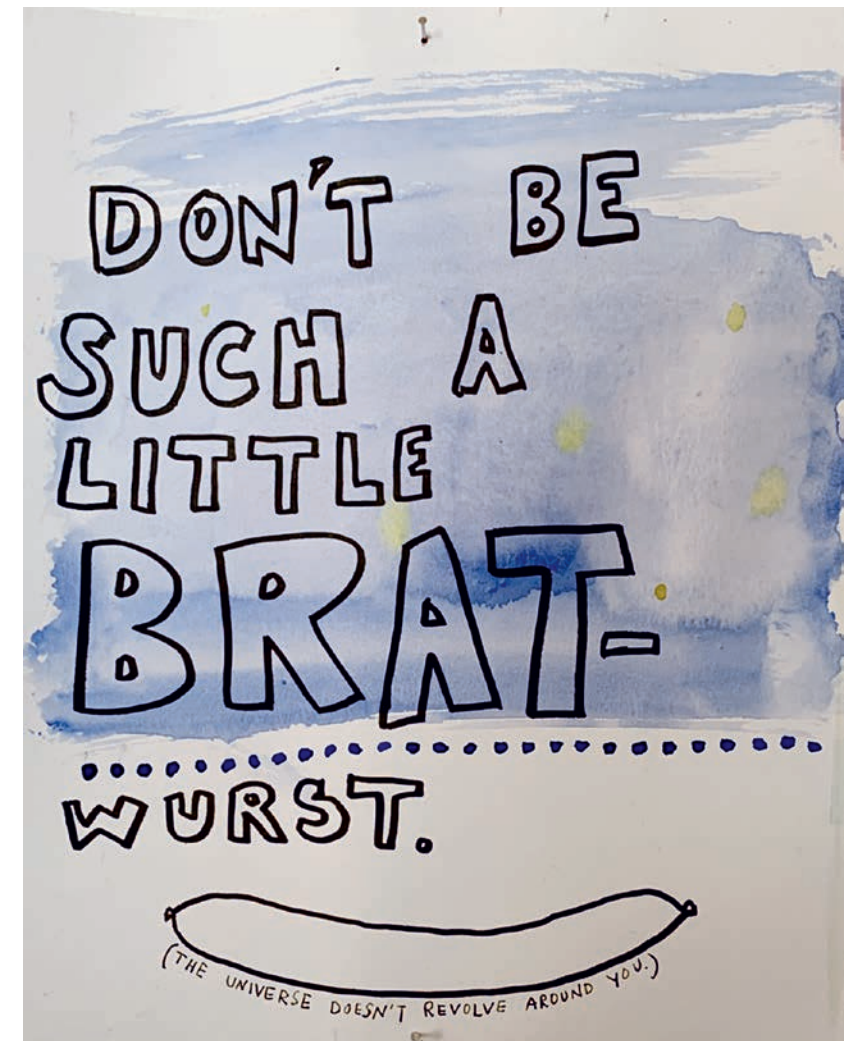 DON'T BE
SUCH A
LITTLE
BRAT-
WURST.
(THE UNIVERSE DOESN'T REVOLVE AROUND YOU.)